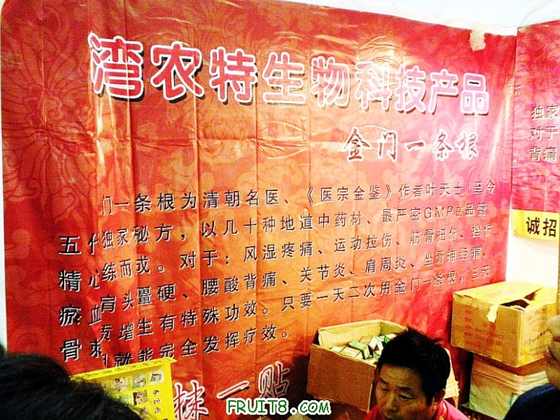 湾农特生物科技产品
金门一条根
门一条根为清朝名医、《医宗金鉴》作者叶天士
五代独家秘方，以几十种地道中药材、最严密GMP
精心练而成。对于：风湿疼痛、运动拉伤、筋骨扭伤、
瘀血肩头僵硬、腰酸背痛、关节炎、肩周炎、坐
骨 增生有特殊功效。只要一天二次用金门一条根，
就能完全发挥疗效。
抹一贴
独家
对于
背痛
诚招
FRUIT8.COM